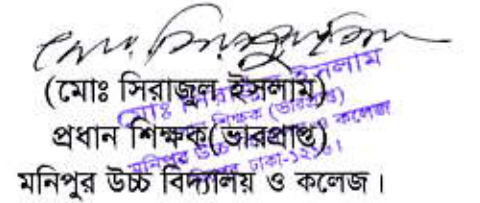 (মোঃ সিরাজুল ইসলাম)
প্রধান শিক্ষক(ভারপ্রাপ্ত)
মনিপুর উচ্চ বিদ্যালয় ও কলেজ।
মোঃ সিরাজুল ইসলাম
শিক্ষক (ভারপ্রাপ্ত)
মনিপুর উচ্চ বিদ্যালয় ও কলেজ
ঢাকা-১২১৬।